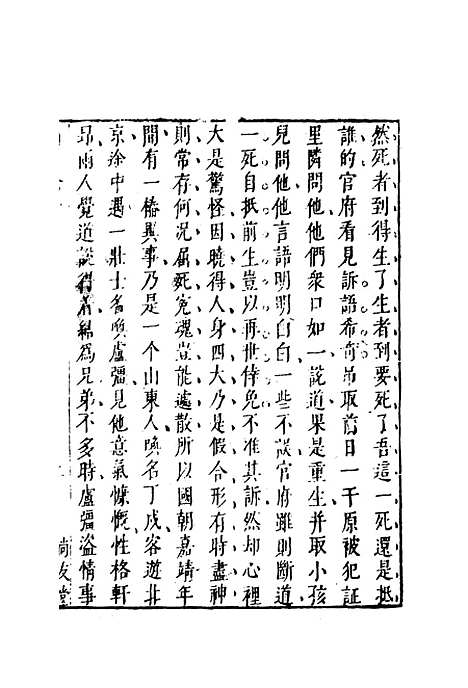 然死者到得生了生者到要死了吾這一死還是抵
誰的官府看見訴語希奇吊取前日一干原被犯証
里隣問他他們衆口如一說道果是重生并取小孩
兒問他他言語明明白白一些不誤官府雖則斷道
一死自抵前生豈以再世倖免不准其訴然却心裡
大是驚怪因曉得人身四大乃是假合形有時盡神
則常存何况屈死寃魂豈能遽散所以國朝嘉靖年
間有一樁異事乃是一个山東人喚名丁戍客遊北
京途中遇一壯士名喚盧彊見他意氣慷慨性格軒
昂兩人覺道說得着結爲兄弟不多時盧彊盜情事
尚友堂